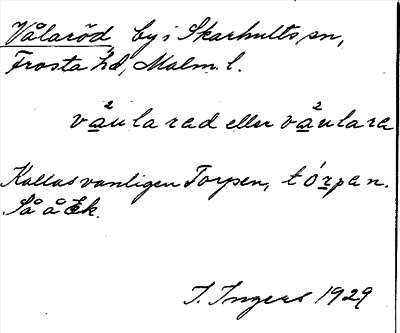 Vålaröd, by i Skarhults sn,
Frosta hd, Malm. l.
våularad eller våulara
Kallas vanligen Torpen, tórpan.
Så å Ek.
I. Ingers 1929